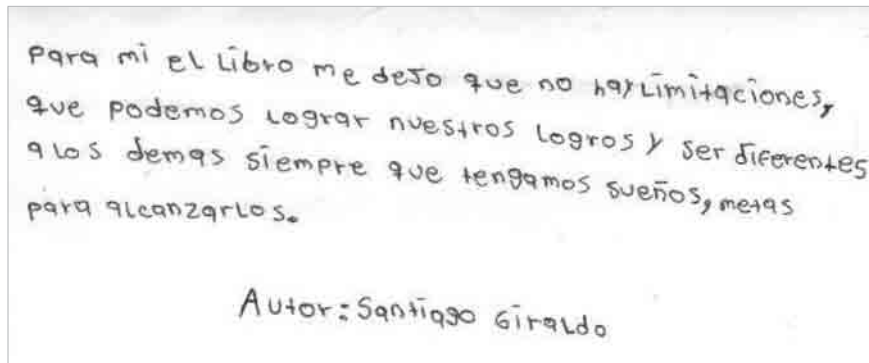 Para mi el Libro me dejo que no hay Limitaciones,
que podemos Lograr nuestros Logros y ser diferentes
a los demas siempre que tengamos sueños, metas
para alcanzarlos.
Autor: Santiago Giraldo